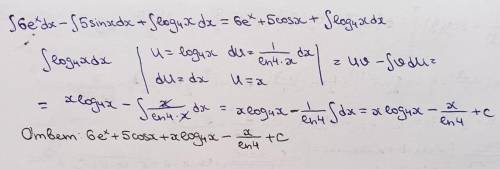 ∫6eˣdx - ∫5sinxdx + ∫log₄x dx = 6eˣ + 5cosx + ∫log₄x dx
∫log₄x dx | u = log₄x du = 1/(ln4·x) dx | = uv - ∫vdu =
du = dx u = x
= xlog₄x - ∫x/(ln4·x) dx = xlog₄x - 1/ln4 ∫dx = xlog₄x - x/ln4 + c
Ответ: 6eˣ + 5cosx + xlog₄x - x/ln4 + c